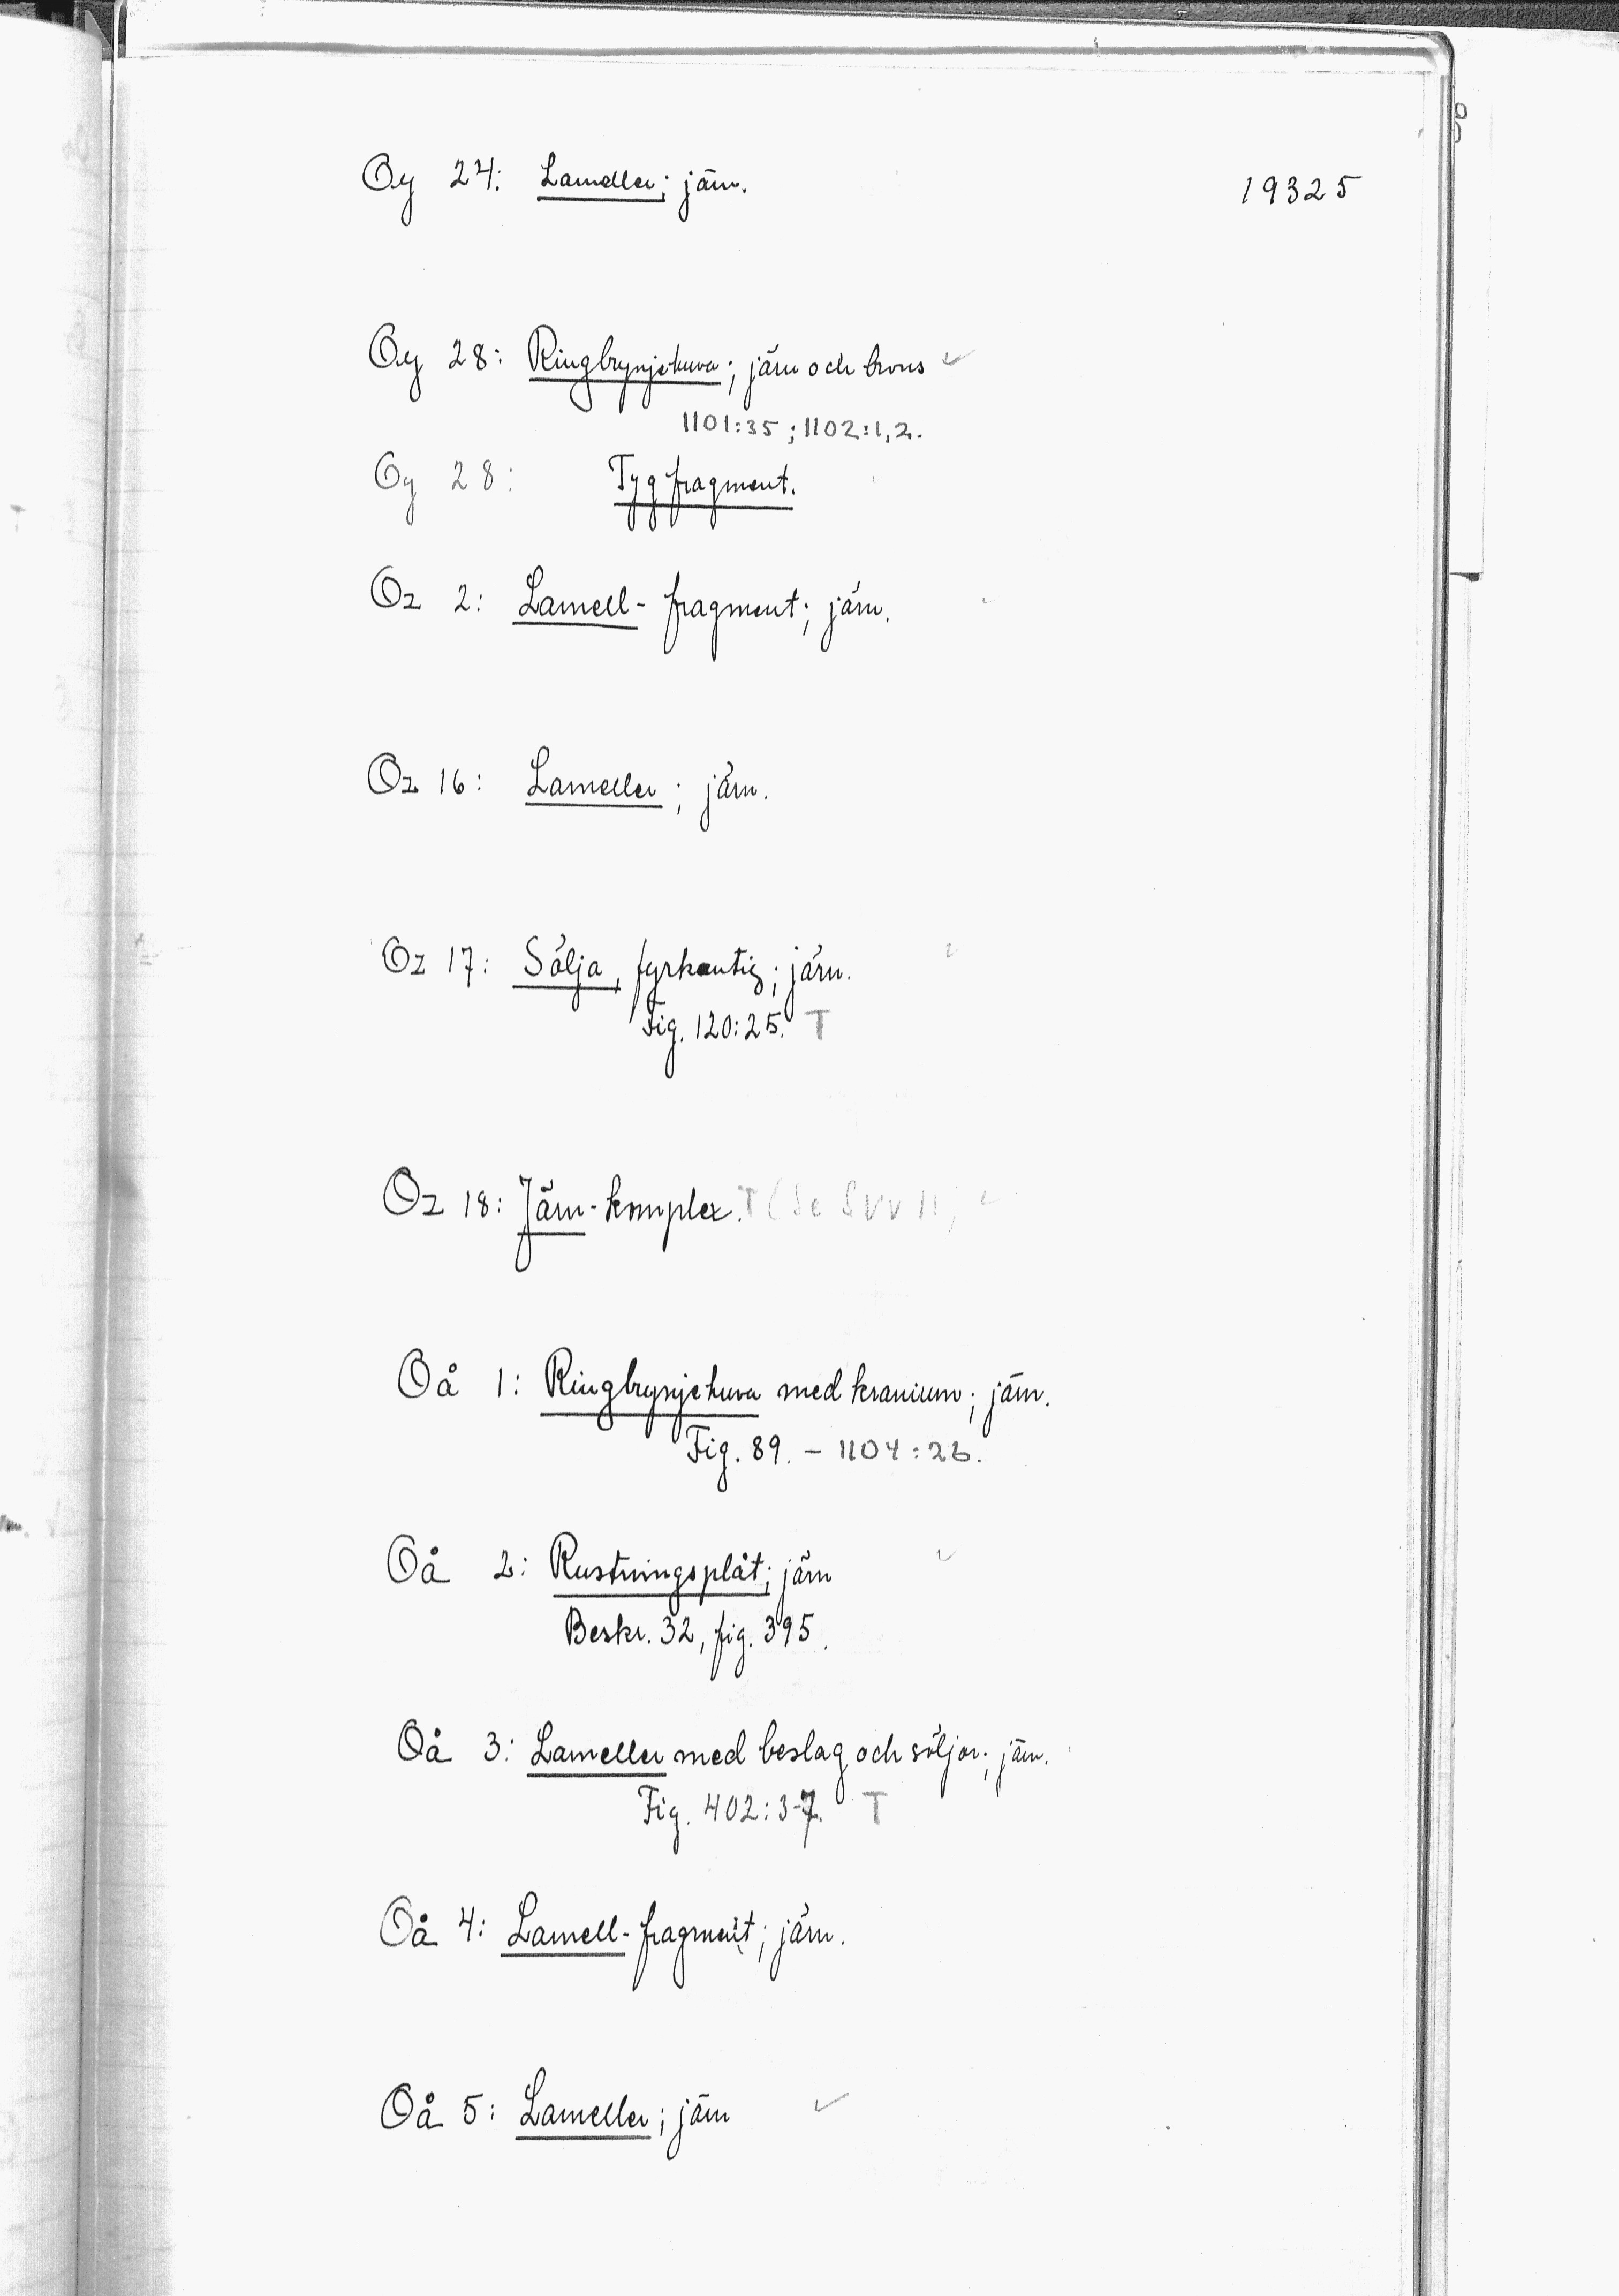 Oy 24: Lameller; järn. 19325
Oy 28: Ringbrynjehuva; järn och brons
1101:35; 1102:1,2.
Oy 28: Tygfragment.
Oz 2: Lamell-fragment; järn.
Oz 16: Lameller; järn.
Oz 17: Sölja, fyrkantig; järn.
Fig. 120:25. T
Oz 18: Järn-komplex. T (Se
Oå 1: Ringbrynjehuva med kranium; järn.
Fig. 89. – 1104:26.
Oå 2: Rustningsplåt; järn
Beskr. 32, fig. 395.
Oå 3: Lameller med beslag och söljor; järn.
Fig. 402:3-7. T
Oå 4: Lamell-fragment; järn.
Oå 5: Lameller; järn